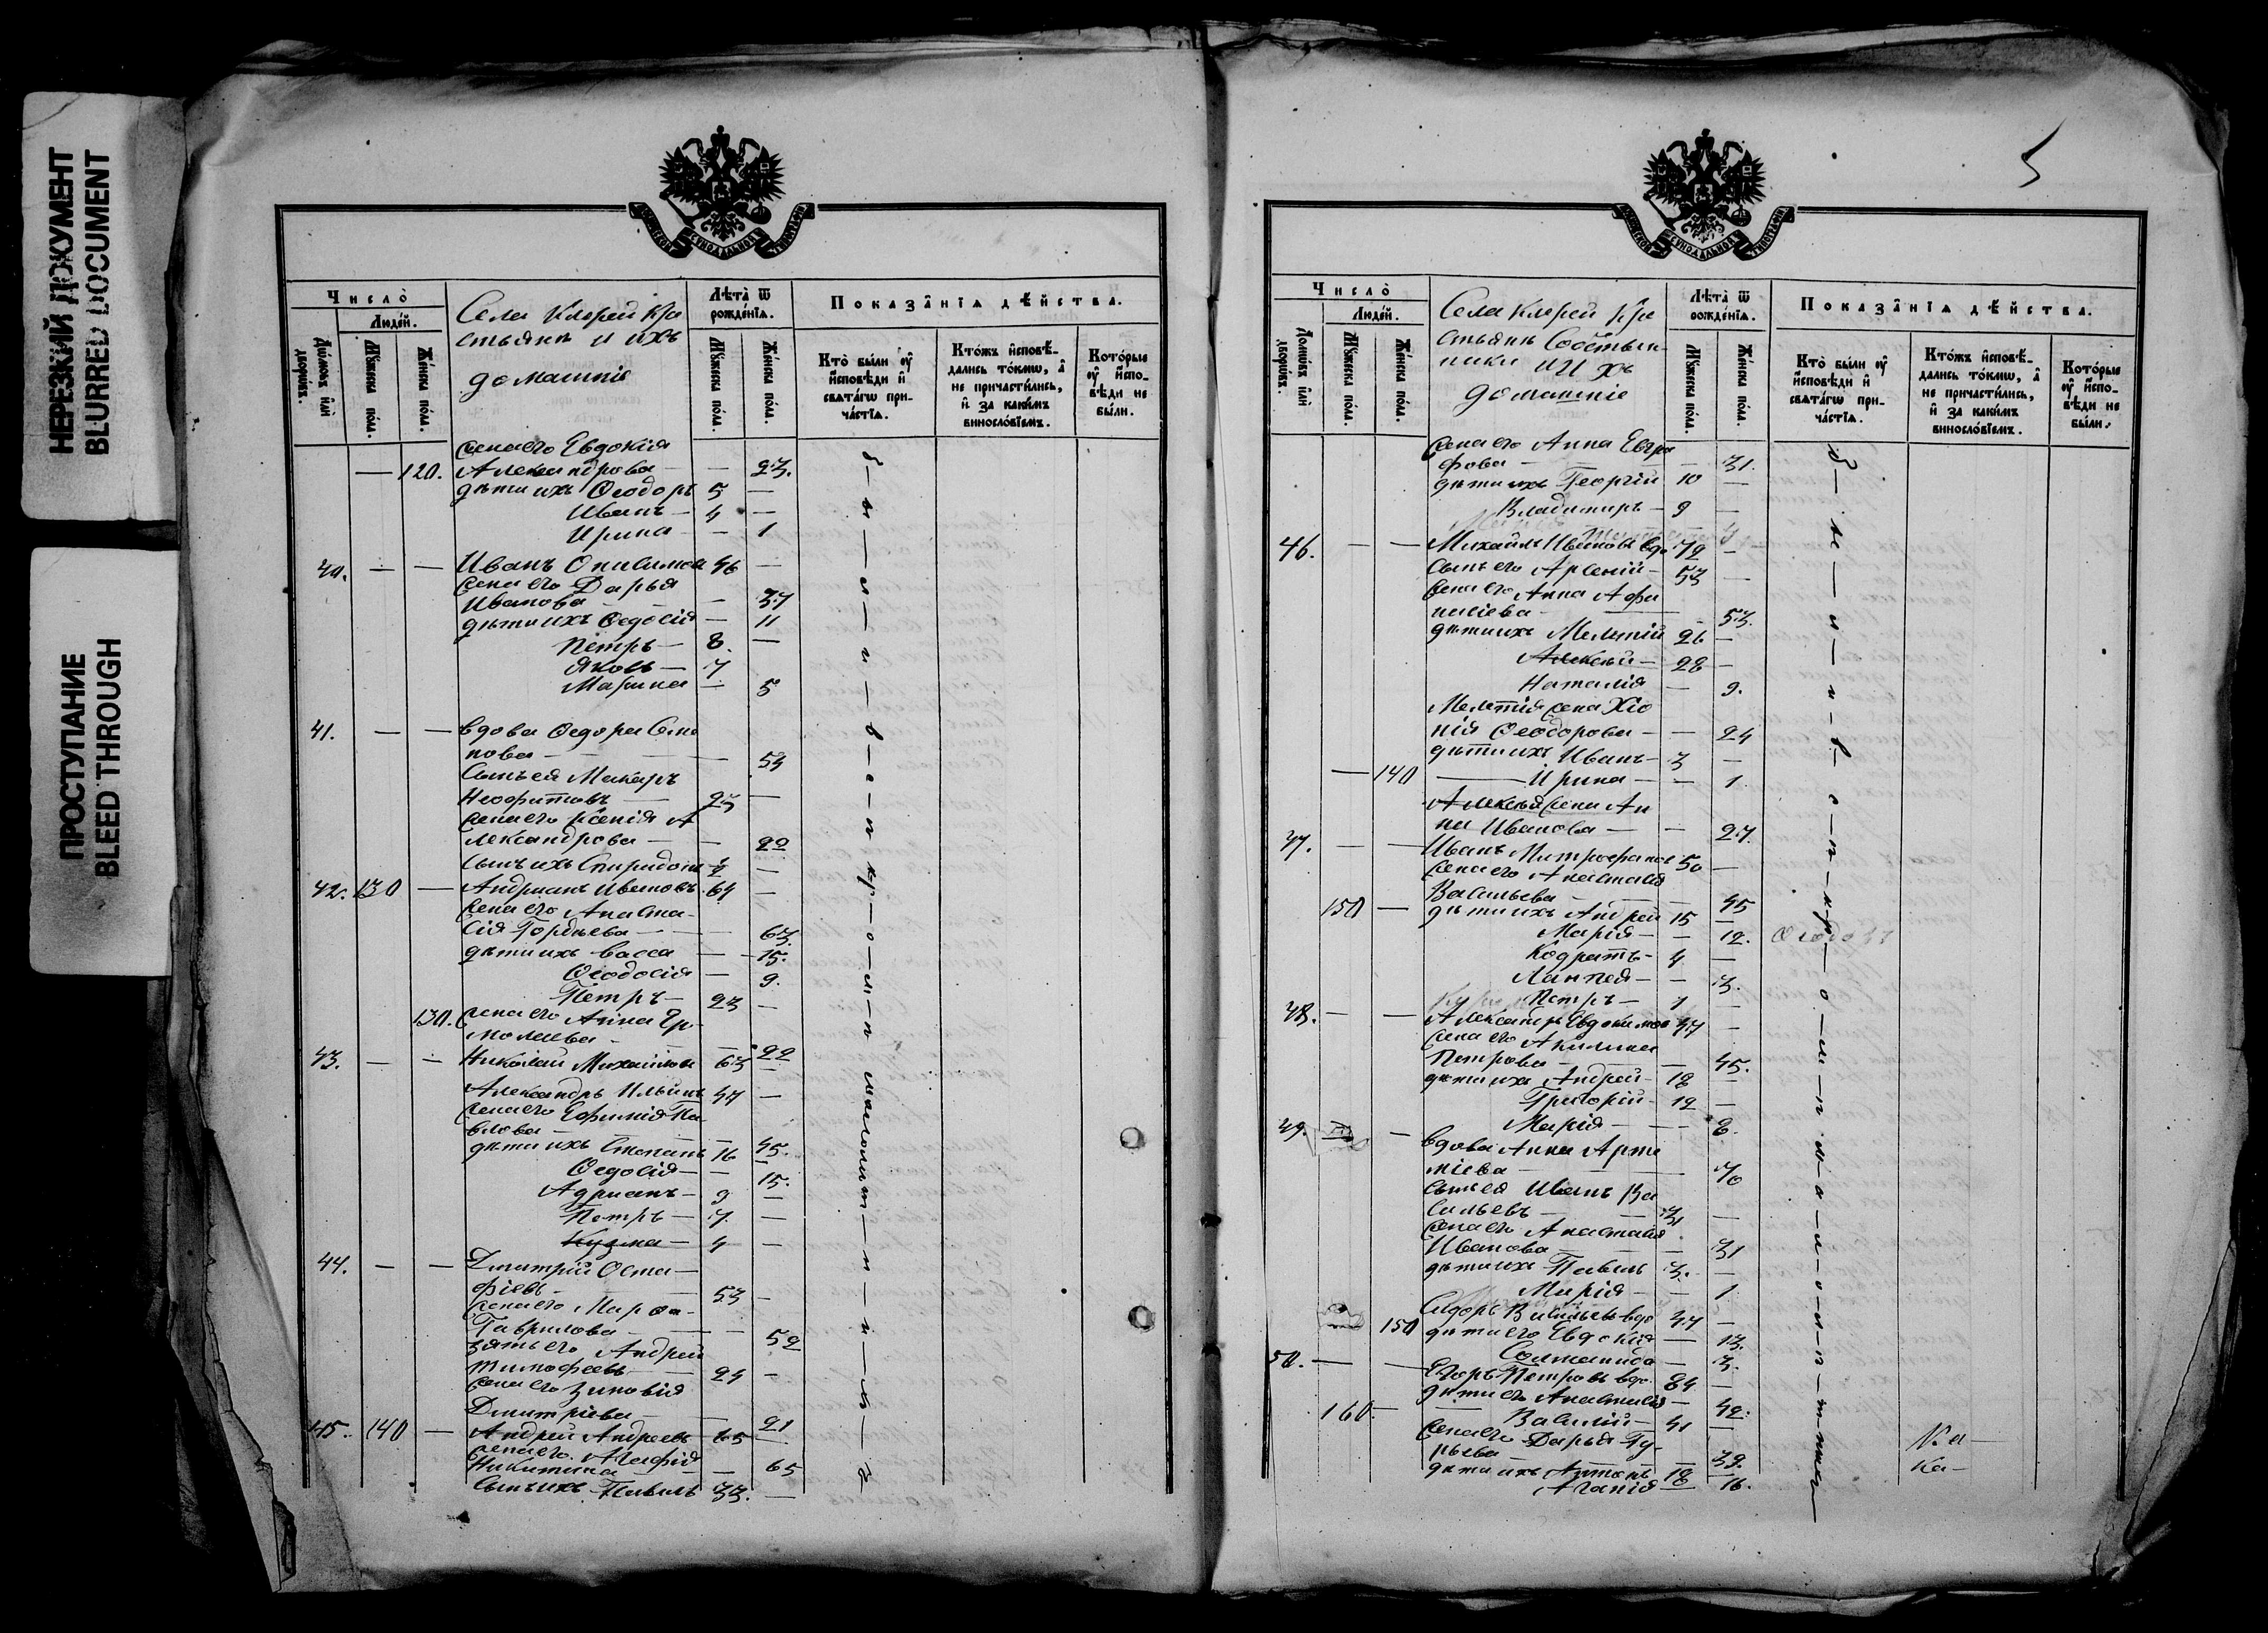 НЕРЕЗКИЙ ДОКУМЕНТ
BLURRED DOCUMENT
ПРОСТУПАНИЕ
BLEED THROUGH
СѴНОДАЛЬНОЙ ТИПОГРАФІИ
Число̀
Людей.
Домовъ или дворовъ.
Мꙋжеска пола.
Женска пола.
Села Клерей Кре
стьяне и ихъ
домашніе
Лѣта ѿ рожденїѧ.
Мꙋжеска пола.
Женска пола.
Показанїѧ дѣйства.
Кто были оу҆
исповѣди и
свѧтагѡ при-
частїѧ.
Ктожъ исповѣ-
дались токмѡ, а
не причастились,
и за какимъ
винословїемъ.
Которые
оу҆ испо-
вѣди не
были.
жена его Евдокія
— 120. Александрова — — 23.
дѣти ихъ Ѳеодоръ 5 —
Иванъ — 4 —
Ирина — — 1
40. — — Иванъ Онисимов 46 —
жена его Дарья
Иванова — — 37
дѣти ихъ Ѳедосія — 11
Петръ — 8. —
Яковъ — 7
Марина — 5
41. — — вдова Ѳедора Семе
нова — — 54
Сынъ ея Макаръ
Неофитовъ — 25 —
жена его Ксенія А
лександрова — — 22
сынъ ихъ Спиридонъ ½ —
42. 130 — Андрианъ Ивановъ 64 —
жена его Анаста-
сія Гордѣева — — 63.
дѣти ихъ Васса — 15.
Ѳеодосія — 9.
Петръ — 23 —
130. жена его Анна Ер-
молаева — — 22
43. — — Николай Михайлов 63 —
Александръ Ильинъ 47 —
жена его Ефимія Па-
влова — — 45.
дѣти ихъ Степанъ 16 —
Ѳедосія — — 15.
Адрианъ — 9 —
Петръ — 7. —
Кузма — 4 —
44. — — Димитрій Оста-
фіевъ — 53 —
жена его Марѳа
Гаврилова — — 52
зять его Андрей
Тимофеевъ — 24 —
жена его Зиновія
Дмитріева — — 21
45. 140 — Андрей Андреевъ 65 —
жена его Агафія
Никитина — — 65
Сынъ ихъ Павелъ 33. —
Были в с е п к р о м п малолѣтнихъ
5
СѴНОДАЛЬНОЙ ТИПОГРАФІИ
Число̀
Людей.
Домовъ или дворовъ.
Мꙋжеска пола.
Женска пола.
Села Клерей Кре
стьяне Собствен-
ники и ихъ
домашніе
Лѣта ѿ рожденїѧ.
Мꙋжеска пола.
Женска пола.
Показанїѧ дѣйства.
Кто были оу҆
исповѣди и
свѧтагѡ при-
частїѧ.
Ктожъ исповѣ-
дались токмѡ, а
не причастились,
и за какимъ
винословїемъ.
Которые
оу҆ испо-
вѣди не
были.
жена его Анна Евгра
фова — — 31.
дѣти ихъ Георгій 10 —
Владимиръ — 9 —
46. — — Михаилъ Ивановъ вдо 72 —
Сынъ его Арсеній — 53 —
жена его Анна Афа
насіева — — 53.
дѣти ихъ Мелетій 26 —
Алексѣй — 28 —
Наталія — 9.
Мелетія жена Хіо
нія Ѳеодорова — — 24
дѣти ихъ Иванъ — 3 —
— 140 — Ирина — — 1
Алексѣя жена Ан
на Иванова — — 27.
47. — — Иванъ Митрофанов 50 —
жена его Анастасія
Васильева — — 45
150 — дѣти ихъ Андрей 15 —
Марія — — 12.
Кодратъ — 4 —
— 3.
Петръ — 1 —
48. — — Александръ Евдокимов 47 —
жена его Акилина
Петрова — — 45.
дѣти ихъ Андрей — 18 —
Григорій — 12 —
Марія — — 8.
49. — вдова Анна Арте
міева — — 70
сынъ ея Иванъ Ва
сильевъ — 31 —
жена его Анастасія
Иванова — — 31
дѣти ихъ Павелъ 3. —
Марія — — 1
Сидоръ Васильевъ вдо 47 —
150 дѣти его Евдокія — 13.
— 3.
50. — — Егоръ Петровъ вдо. 84 —
дѣти его Анастасія — 42.
160. — Василій — 41 —
жена его Дарья Гу-
рьева — — 39.
дѣти ихъ Антонъ 18 —
Агапія — 16.
Ѳеодоръ
Ка —
Ка —